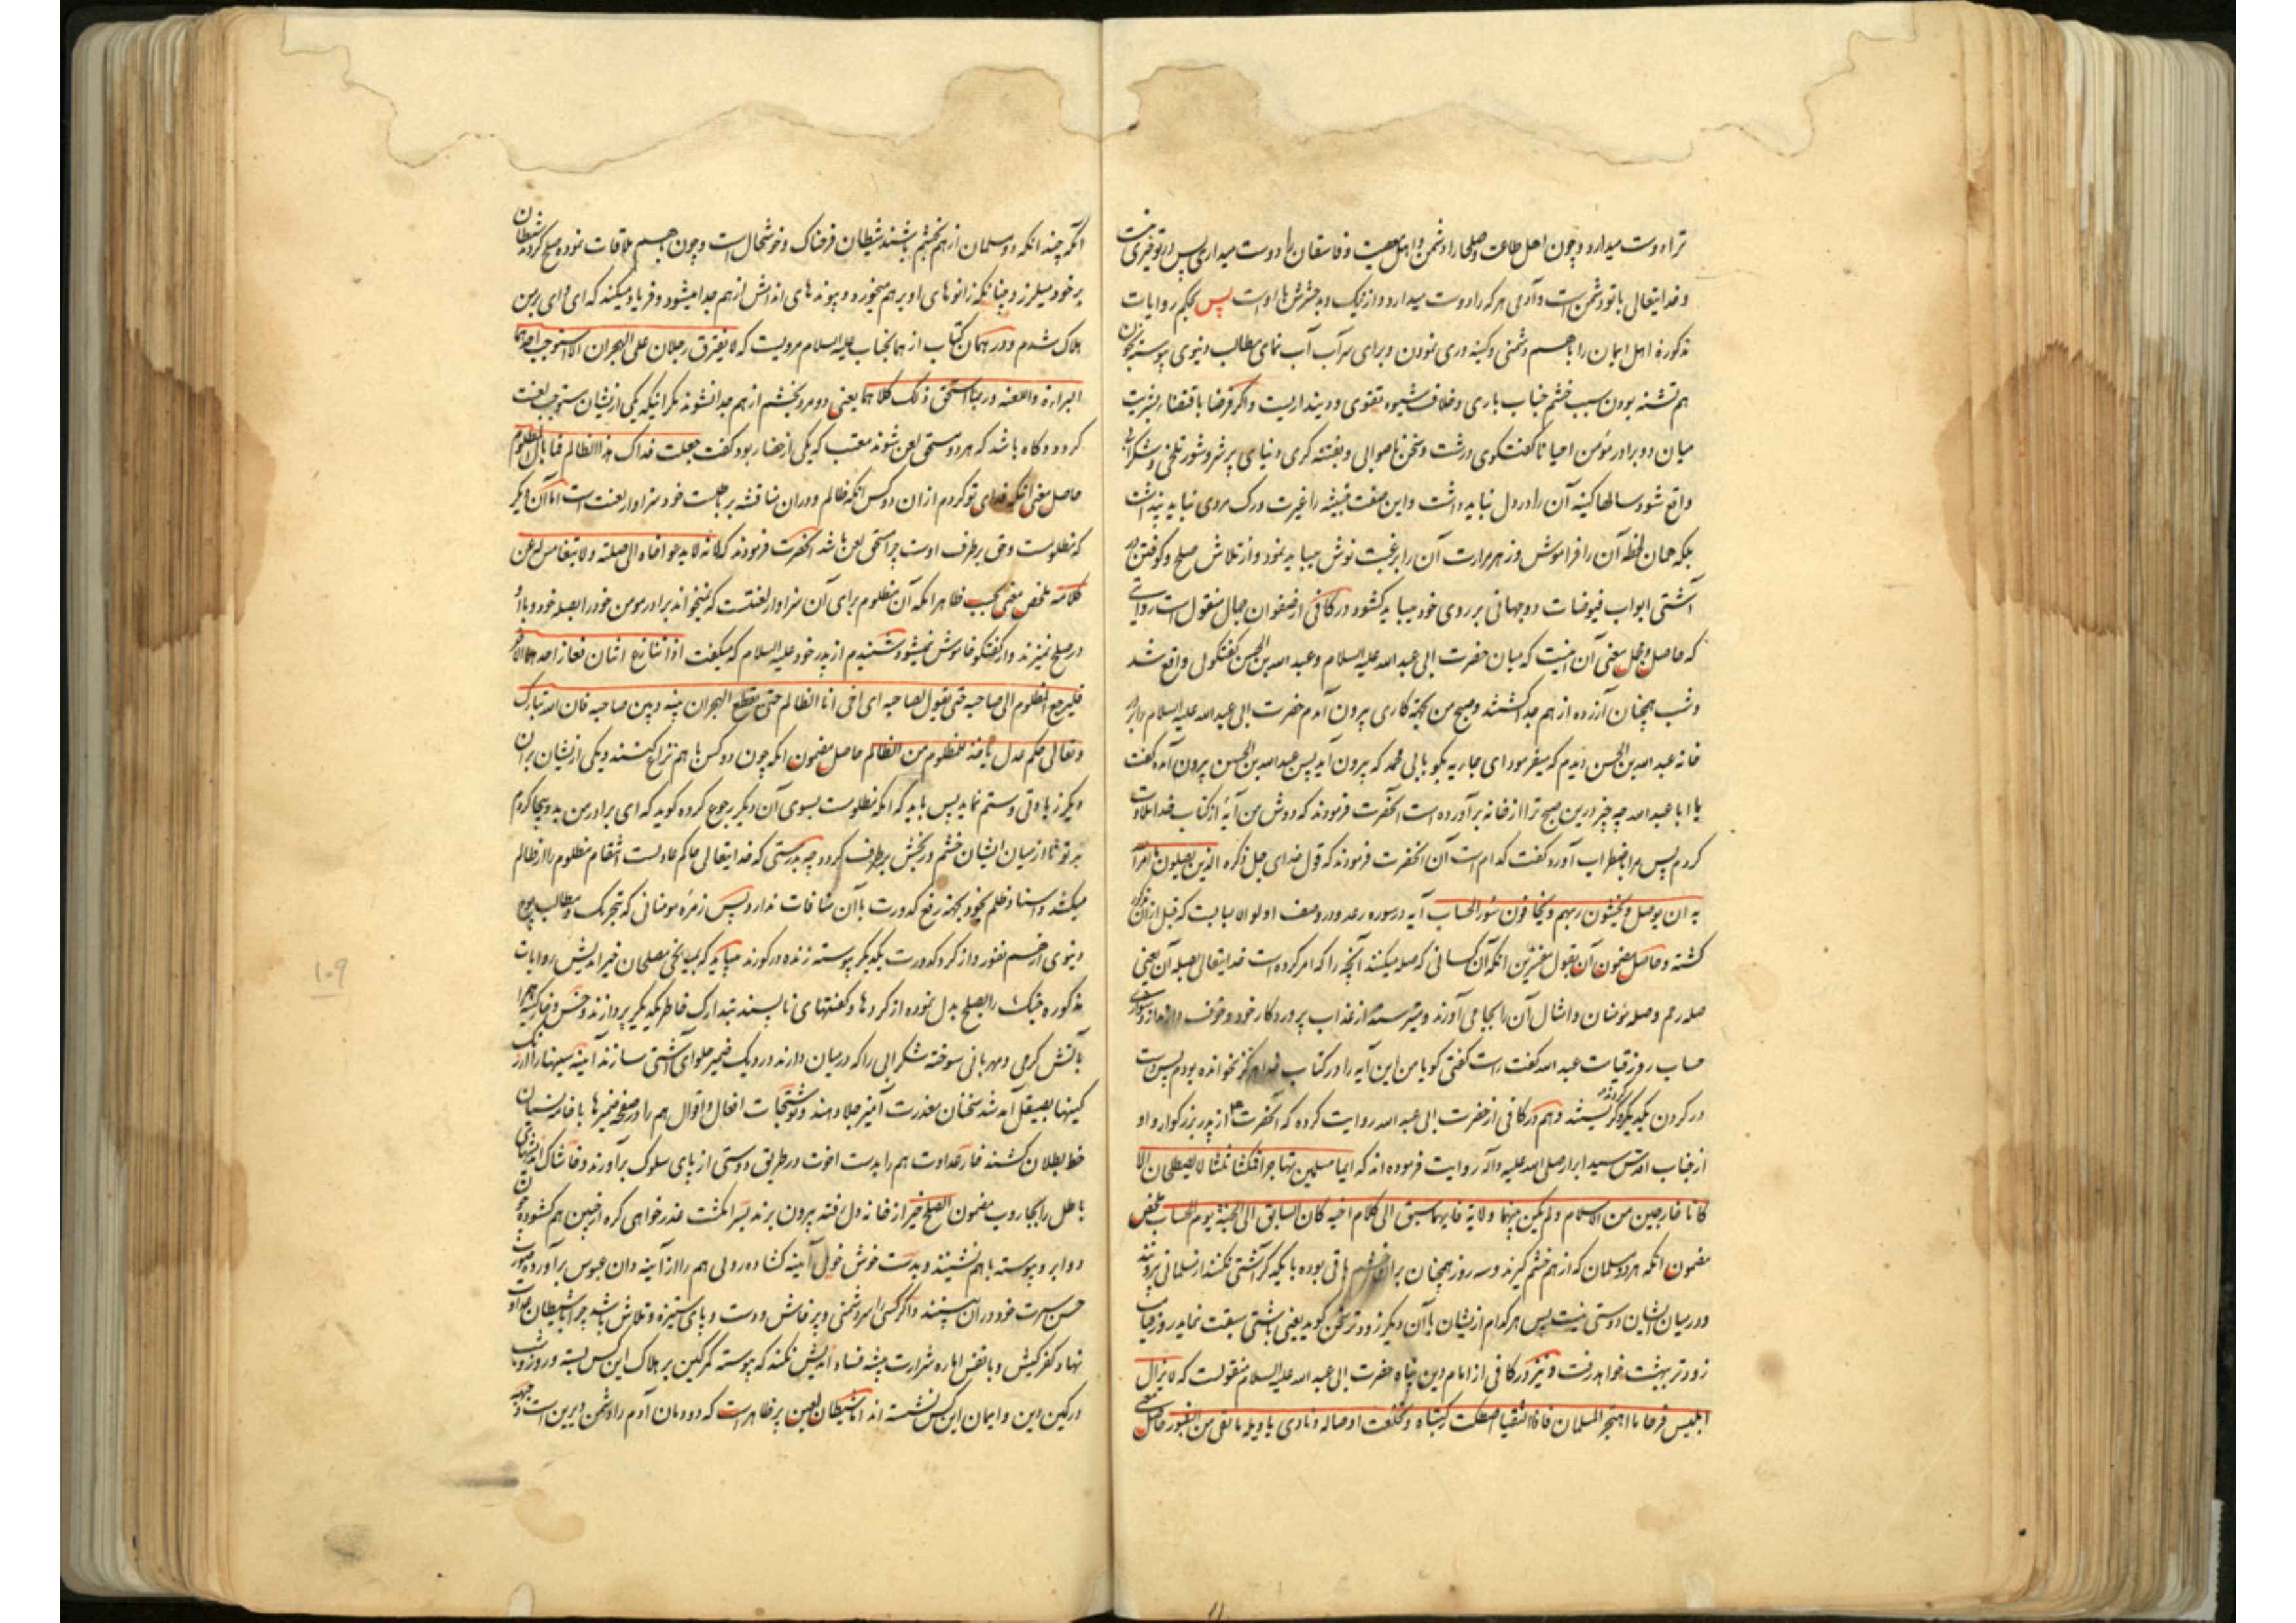 ترا دوست میدارد و چون اهل طاعت و صلحا را دشمن و اهل معصیت و فاسقان را دوست میداری پس در تو خیری نیست
و خدایتعالی با تو دشمن است و آدمی هر که را دوست میدارد و از نیک و بد حشرش با اوست پس بحکم روایات
مذکوره اهل ایمان را با هم دشمنی و کینه وری نمودن و برای سرآب آب نمای مطالب دنیوی پیوسته بخون
هم تشنه بودن سبب خشم جناب باری و خلاف شیوه تقوی و دینداریست و اگر فرضا باقتضاء بشریت
میان دو برادر مؤمن احیانا گفتگوی درشت و سخن ناصوابی و بفتنه گری دنیای پر شر و شور تلخی و شکرابی
واقع شود سالها کینه آن را در دل نباید داشت و این صفت خبیثه را غیرت و رک مردی نباید پنداشت
بلکه همان لحظه آن را فراموش و زهر مرارت آن را برغبت نوش میباید نمود و از تلاش صلح و کوفتن در
آشتی ابواب فیوضات دو جهانی بر روی خود میباید کشود در کافی از صفوان جمال منقول است روایتی
که حاصل مجمل معنی آن اینست که میان حضرت ابی عبد الله علیه السلام و عبد الله بن الحسن گفتگویی واقع شد
و شب همچنان آزرده از هم جدا گشتند و صبح من بجهة کاری بیرون آمدم حضرت ابی عبد الله علیه السلام را بر در
خانه عبد الله بن الحسن دیدم که میفرمود ای جاریه بگو بابی محمد که بیرون آید پس عبد الله بن الحسن بیرون آمده گفت
یا ابا عبد الله چه چیز درین صبح ترا از خانه برآورده است آنحضرت فرمودند که دوش من آیهٔ از کتاب خدا تلاوت
کردم پس مرا باضطراب آورد گفت کدام است آن آنحضرت فرمودند که قول خدای جل ذکره الذین یصلون ما امر الله
به ان یوصل و یخشون ربهم و یخافون سوء الحساب آیه در سوره رعد و در وصف اولو الالبابست که قبل از آن مذکور
گشته و حاصل مضمون آن بقول مفسرین آنکه آن کسانی که صله میکنند آنچه را که امر کرده است خدایتعالی بصله آن یعنی
صله رحم و صله مؤمنان و امثال آن را بجا می آورند و میترسند از عذاب پروردگار خود و خوف دارند از بدی
حساب روز قیامت عبد الله گفت راست گفتی گویا من این آیه را در کتاب خدا هرگز نخوانده بودم پس دست
در گردن یکدیگر کرده گریستند و هم در کافی از حضرت ابی عبد الله روایت کرده که آنحضرت از پدر بزرگوار و او
از جناب اقدس سید ابرار صلی الله علیه و آله روایت فرموده اند که ایما مسلمین تهاجرا فمکثا ثلثا لا یصطلحان الا
کانا خارجین من الاسلام و لم یکن بینهما ولایة فایهما سبق الی کلام اخیه کان السابق الی الجنة یوم الحساب ملخص
مضمون آنکه هر دو مسلمان که از هم خشم گیرند و سه روز همچنان بر آن خشم باقی بوده با یکدیگر آشتی نکنند از مسلمانی بیرونند
و در میان ایشان دوستی نیست پس هر کدام از یشان با آن دیگر زودتر سخن گوید یعنی بآشتی سبقت نماید روز قیامت
زودتر ببهشت خواهد رفت و نیز در کافی از امام دین پناه حضرت ابی عبد الله علیه السلام منقولست که لا یزال
ابلیس فرحا ما اهتجر المسلمان فاذا التقیا اصطکت رکبتاه و تخلعت اوصاله و نادی یا ویله ما لقی من الثبور حاصل معنی
آنکه چندانکه دو مسلمان از هم بخشم باشند شیطان فرحناک و خوشحال است و چون باهم ملاقات نموده صلح کردند شیطان
بر خود میلرزد چنانکه زانوهای او بر هم میخورد و پیوندهای اندامش از هم جدا میشود و فریاد میکند که ای وای بر من
هلاک شدم و در همان کتاب از همانجناب علیه السلام مرویست که لا یفترق رجلان علی الهجران الا استوجب احدهما
البرآءة و اللعنه و ربما استحق ذلک کلاهما یعنی دو مرد بخشم از هم جدا نشوند مگر اینکه یکی از یشان مستوجب لعنت
گردد و گاه باشد که هر دو مستحق لعن شوند معتب که یکی از حضار بود گفت جعلت فداک هذا الظالم فما بال المظلوم
حاصل معنی آنکه فدای تو گردم از آن دو کس آنکه ظالم و در آن مناقشه بر باطلست خود سزاوار لعنت است اما آن دیگر
که مظلومست و حق بطرف اوست چرا مستحق لعن باشد آنحضرت فرمودند که لانه لا یدعو اخاه الی صلته و لا یتغامس له عن
کلامه ملخص معنی بحسب ظاهر آنکه آن مظلوم برای آن سزاوار لعنتست که نمیخواند برادر مومن خود را بصله خود و با او
در صلح نمیزند و از گفتگو خاموش نمیشود شنیدم از پدر خود علیه السلام که میگفت اذا تنازع اثنان فعاز احدهما الآخر
فلیرجع المظلوم الی صاحبه حتی یقول لصاحبه ای اخی انا الظالم حتی یقطع الهجران بینه و بین صاحبه فان الله تبارک
و تعالی حکم عدل یأخذ للمظلوم من الظالم حاصل مضمون آنکه چون دو کس با هم نزاع کنند و یکی از یشان بر آن
دیگر زیادتی و ستم نماید پس باید که آنکه مظلومست بسوی آن دیگر رجوع کرده گوید که ای برادر من بد و بیجا کردم
بر تو تا از میان ایشان خشم و رنجش برطرف گردد چه بدرستی که خدایتعالی حاکم عادلست انتقام مظلوم را از ظالم
میکشد و اسناد ظلم بخود بجهة رفع کدورت با آن منافات ندارد پس زمره مومنانی که بتحریک مطالب
دنیوی از هم نفور و از گرد کدورت یکدیگر پیوسته زنده در گورند میباید که بمیانجی مصلحان خیراندیش روایات
مذکوره جنک را بصلح بدل نموده از کردها و گفتهای ناپسند بتدارک خاطر یکدیگر پردازند و خس و خار کینه
بآتش گرمی و مهربانی سوخته شکرابی را که در میان دارند در دیک ضمیر حلوای آشتی سازند آینه سینها را از زنک
کینها بصیقل آمد شد سخنان معذرت آمیز جلا دهند و نوشتجات افعال و اقوال هم را در صفحه ضمیرها با خامه نسیان
خط بطلان کشند خار عداوت هم را بدست اخوت در طریق دوستی از پای سلوک برآورند و خاشاک
باطل را بجاروب مضمون الصلح خیر از خانه دل رفته بیرون برند بسرانگشت عذر خواهی گره از جبین هم گشوده چون
دو ابرو پیوسته با هم نشینند و بدست خوش خویی آینه گشاده رویی هم را از آینه دان عبوس برآورده صورت
حسن سیرت خود در آن بینند و اگر کسی را سر دشمنی و پرخاش و دست و پای ستیزه و تلاش باشد چرا با شیطان عداوت
نهاد کفر کیش و با نفس اماره شرارت پیشه فساد اندیش نکند که پیوسته کمر کین بر هلاک این کس بسته و روز و شب
در کمین دین و ایمان این کس نشسته اند اما شیطان لعین پر ظاهر است که دودمان آدم را دشمن دیرین است
۱۰۹